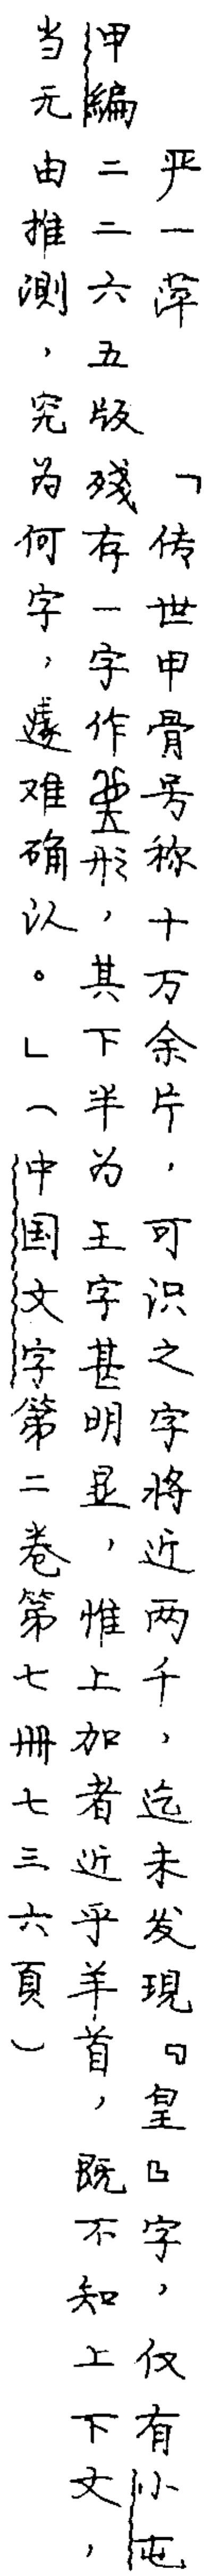 严一萍 「传世甲骨号称十万余片，可识之字将近两千，迄未发現『皇』字，仅有小屯
甲編二二六五版残存一字作形，其下半为王字甚明显，惟上加者近乎羊首，既不知上下文，
当无由推測，究为何字，遽难确认。」（中国文字第二卷第七冊七三六頁）